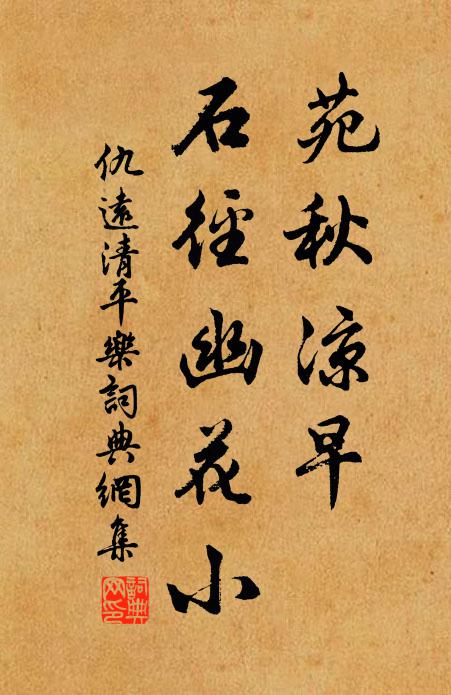 苑秋涼早
石徑幽花小
仇遠清平樂詞典網集
詞典網印